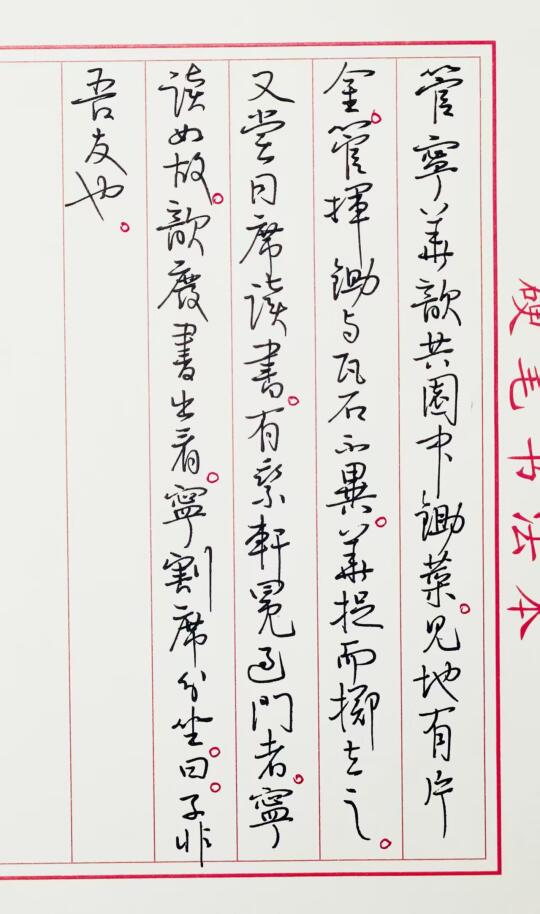 硬毛书法本
管寧華歆共園中鋤菜。見地有片
金。管揮鋤与瓦石不異。華捉而擲去之。
又嘗同席读書。有乘軒冕過門者。寧
读如故。歆廢書出看。寧割席分坐。曰。子非
吾友也。